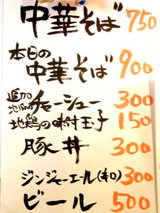 中華そば 750
本日の
中華そば 900
追加 チャーシュー 300
地鶏の味付玉子 150
豚丼 300
ジンジャーエール(和) 300
ビール 500